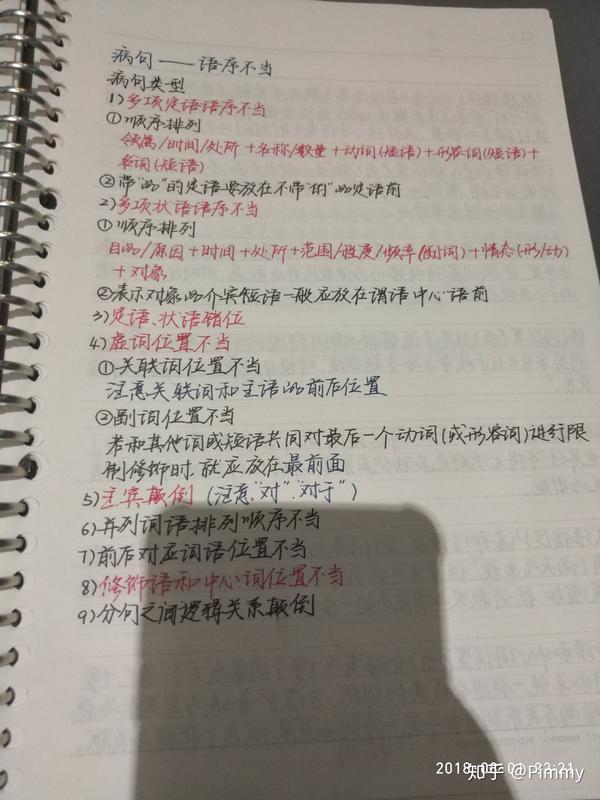 病句——语序不当
病句类型
1)多项定语语序不当
①顺序排列
领属/时间/处所+名称/数量+动词(短语)+形容词(短语)+
名词(短语)
②带"的"的定语要放在不带"的"的定语前
2)多项状语语序不当
①顺序排列
目的/原因+时间+处所+范围/程度/频率(副词)+情态(形/动)
+对象
②表示对象的介宾短语一般应放在谓语中心语前
3)定语、状语错位
4)虚词位置不当
①关联词位置不当
注意关联词和主语的前后位置
②副词位置不当
若和其他词或短语共同对最后一个动词(或形容词)进行限
制修饰时,就应放在最前面
5)主宾颠倒(注意"对""对于")
6)并列词语排列顺序不当
7)前后对应词语位置不当
8)修饰语和中心词位置不当
9)分句之间逻辑关系颠倒
知乎 @Pimmy